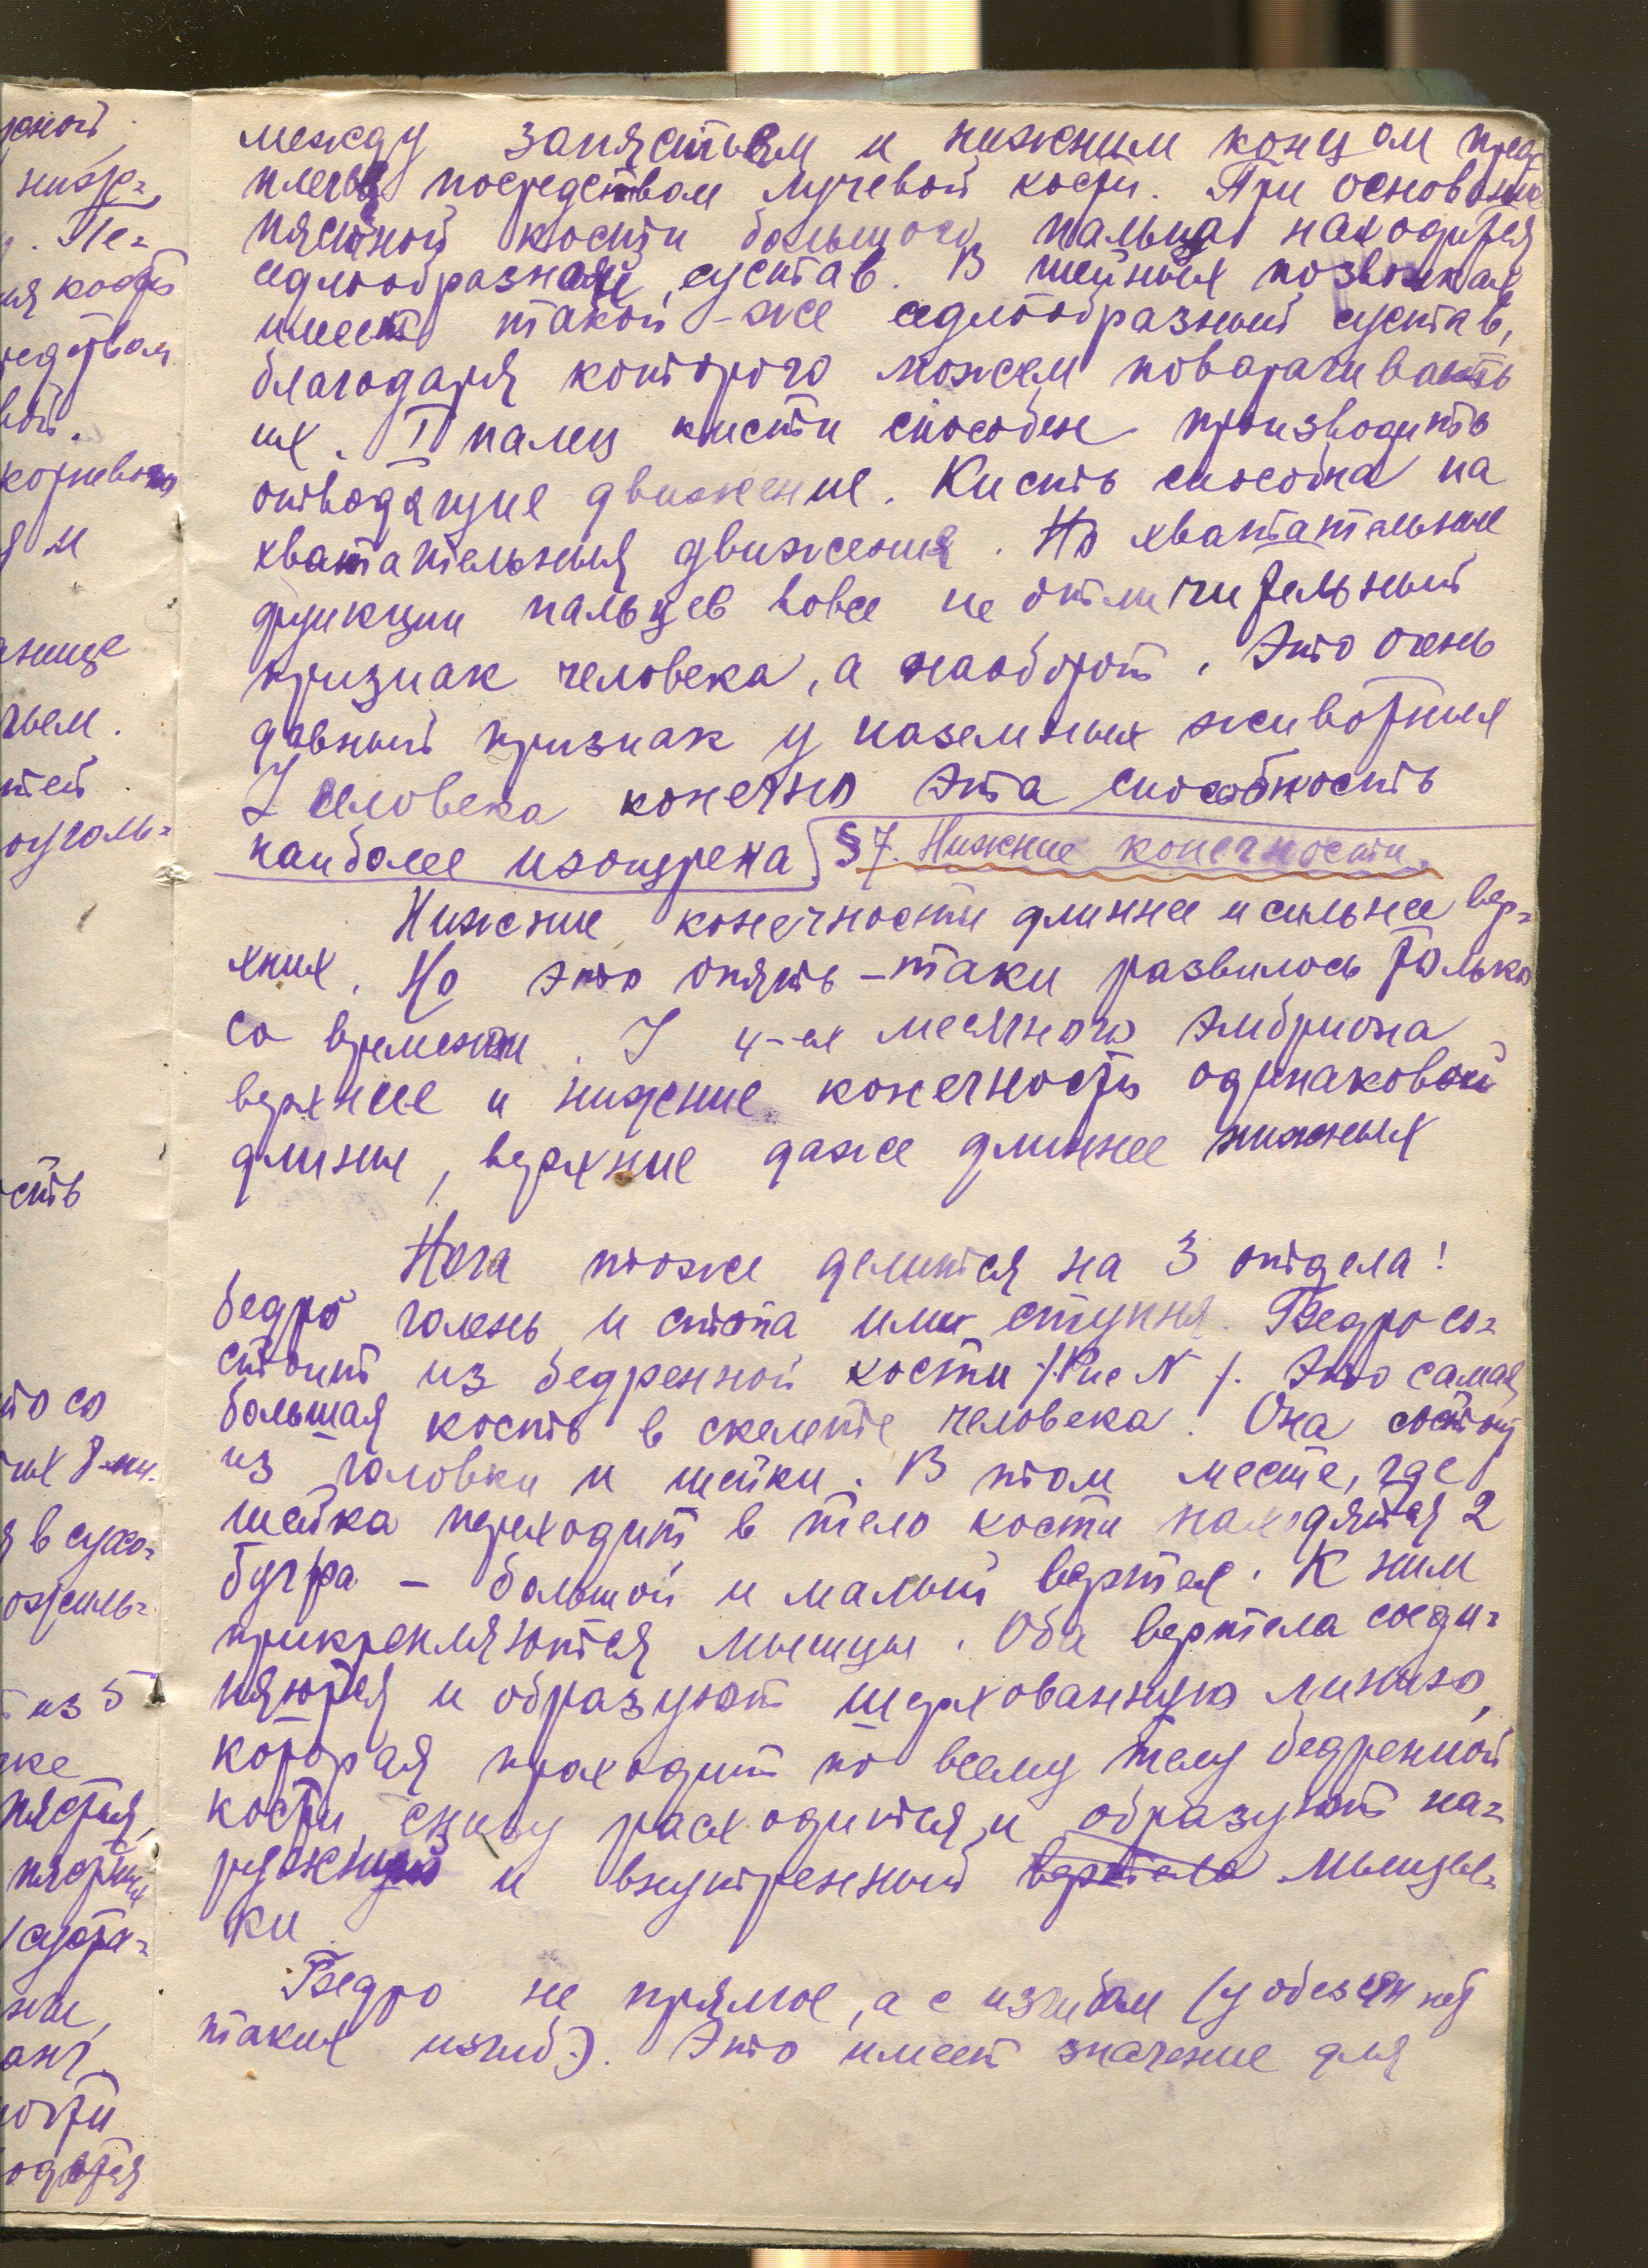 между запястьем и нижним концом пред
плечья посредством лучевой кости. При основании
пястной кости большого пальца находится
седлообразный сустав. В шейных позвонках
имеет такой-же седлообразный сустав,
благодаря которого можем поварачивать
их. I палец кисти способен производить
отводящие движение. Кисть способна на
хватательныя движения. Но хватательные
функции пальцев вовсе не отличительный
признак человека, а наоборот. Это очень
давный признак у наземных животных
У человека конечно эта способность
наиболее изощрена. §7. Нижние конечности.
Нижние конечности длиннее и сильнее вер=
хних. Но это опять-таки развилось только
со временем. У 4-ех месячного эмбриона
верхнее и нижние конечность одинаковой
длины, верхние даже длиннее нижных
Нога тоже делится на 3 отдела!
бедро голень и стопа или ступня. Бедро со=
стоит из бедренной кости /Рис N /. Это самая
большая кость в скелете человека. Она состоит
из головки и шейки. В том месте, где
шейка переходит в тело кости находятся 2
бугра – большой и малый вертел. К ним
прикрепляются мышцы. Оба вертела соеди=
няются и образуют шерхованную линию,
которая проходит по всему телу бедренной
кости снизу расходится и образуют на=
ружный и внутренный вертела мыщел=
ки
Бедро не прямое, а с изгибом (у обезян нет
таких изгиб.). Это имеет значение для
рхной
ниж=
. Пе=
ия кость
редством
вой.
корневого
я и
чьем.
тей
сть
то со
их 8-ми.
я в сухо=
ожиль=
из 5
ке
пястья,
/суста=
ости
одятся